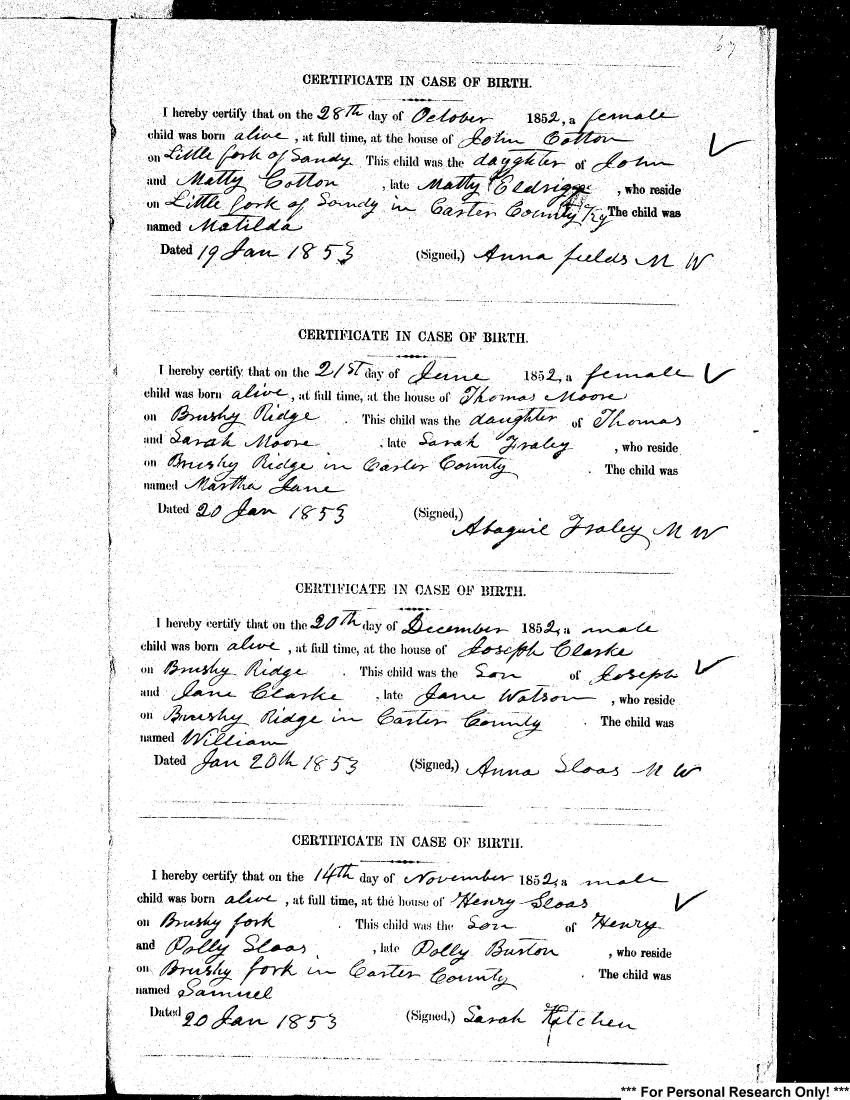 67
CERTIFICATE IN CASE OF BIRTH.
I hereby certify that on the 28th day of October 1852, a female
child was born alive, at full time, at the house of John Cotton
on Little fork of Sandy This child was the daughter of John
and Matty Cotton, late Matty, who reside
on Little fork of Sandy in Carter County Ky The child was
named Matilda
Dated 19 Jan 1853 (Signed,) Anna fields M W
CERTIFICATE IN CASE OF BIRTH.
I hereby certify that on the 21st day of June 1852, a female
child was born alive, at full time, at the house of Thomas Moore
on Brushy Ridge. This child was the daughter of Thomas
and Sarah Moore, late Sarah Fraley, who reside
on Brushy Ridge in Carter County. The child was
named Martha Jane
Dated 20 Jan 1853 (Signed,)
Abaguil Fraley M W
CERTIFICATE IN CASE OF BIRTH.
I hereby certify that on the 20th day of December 1852, a male
child was born alive, at full time, at the house of Joseph Clarke
on Brushy Ridge. This child was the Son of Joseph
and Jane Clarke, late Jane Watson, who reside
on Brushy Ridge in Carter County. The child was
named William
Dated Jan 20th 1853 (Signed,) Anna Sloas M W
CERTIFICATE IN CASE OF BIRTH.
I hereby certify that on the 14th day of November 1852, a male
child was born alive, at full time, at the house of Henry Sloas
on Brushy fork. This child was the Son of Henry
and Polly Sloas, late Polly Burton, who reside
on Brushy fork in Carter County. The child was
named Samuel
Dated 20 Jan 1853 (Signed,) Sarah Kitchen
*** For Personal Research Only! ***